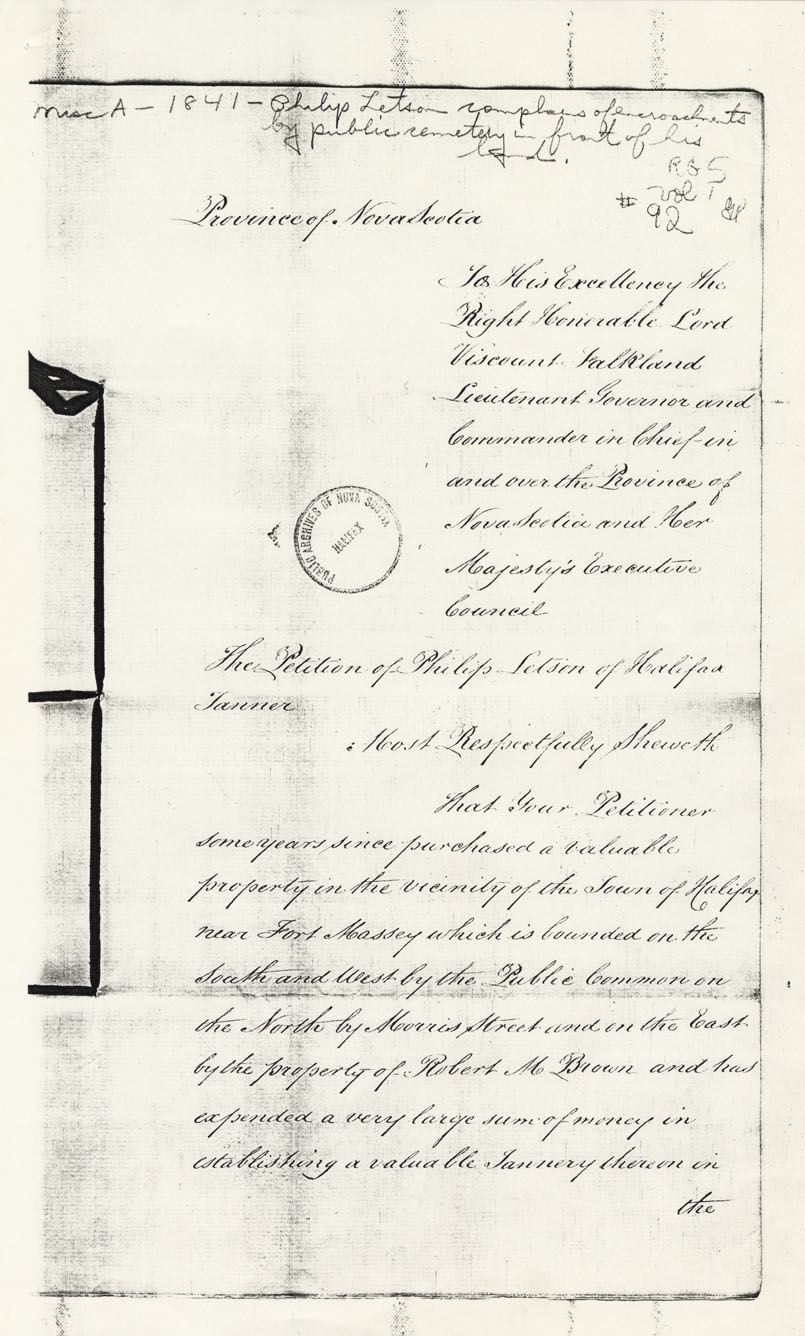 Misc A - 1841 - Philip Letson complains of encroachments
by public cemetery in front of his
land.
RG 5
vol 1
# 92
Province of Nova Scotia
To His Excellency the
Right Honorable Lord
Viscount Falkland
Lieutenant Governor and
Commander in Chief in
and over the Province of
Nova Scotia and Her
Majesty's Executive
Council
PUBLIC ARCHIVES OF NOVA SCOTIA
HALIFAX
The Petition of Philip Letson of Halifax
Tanner
Most Respectfully Sheweth
That Your Petitioner
some years since purchased a valuable
property in the vicinity of the Town of Halifax
near Fort Massey which is bounded on the
South and West by the Public Common on
the North by Morris Street and on the East
by the property of Robert M Brown and has
expended a very large sum of money in
establishing a valuable Tannery thereon in
the